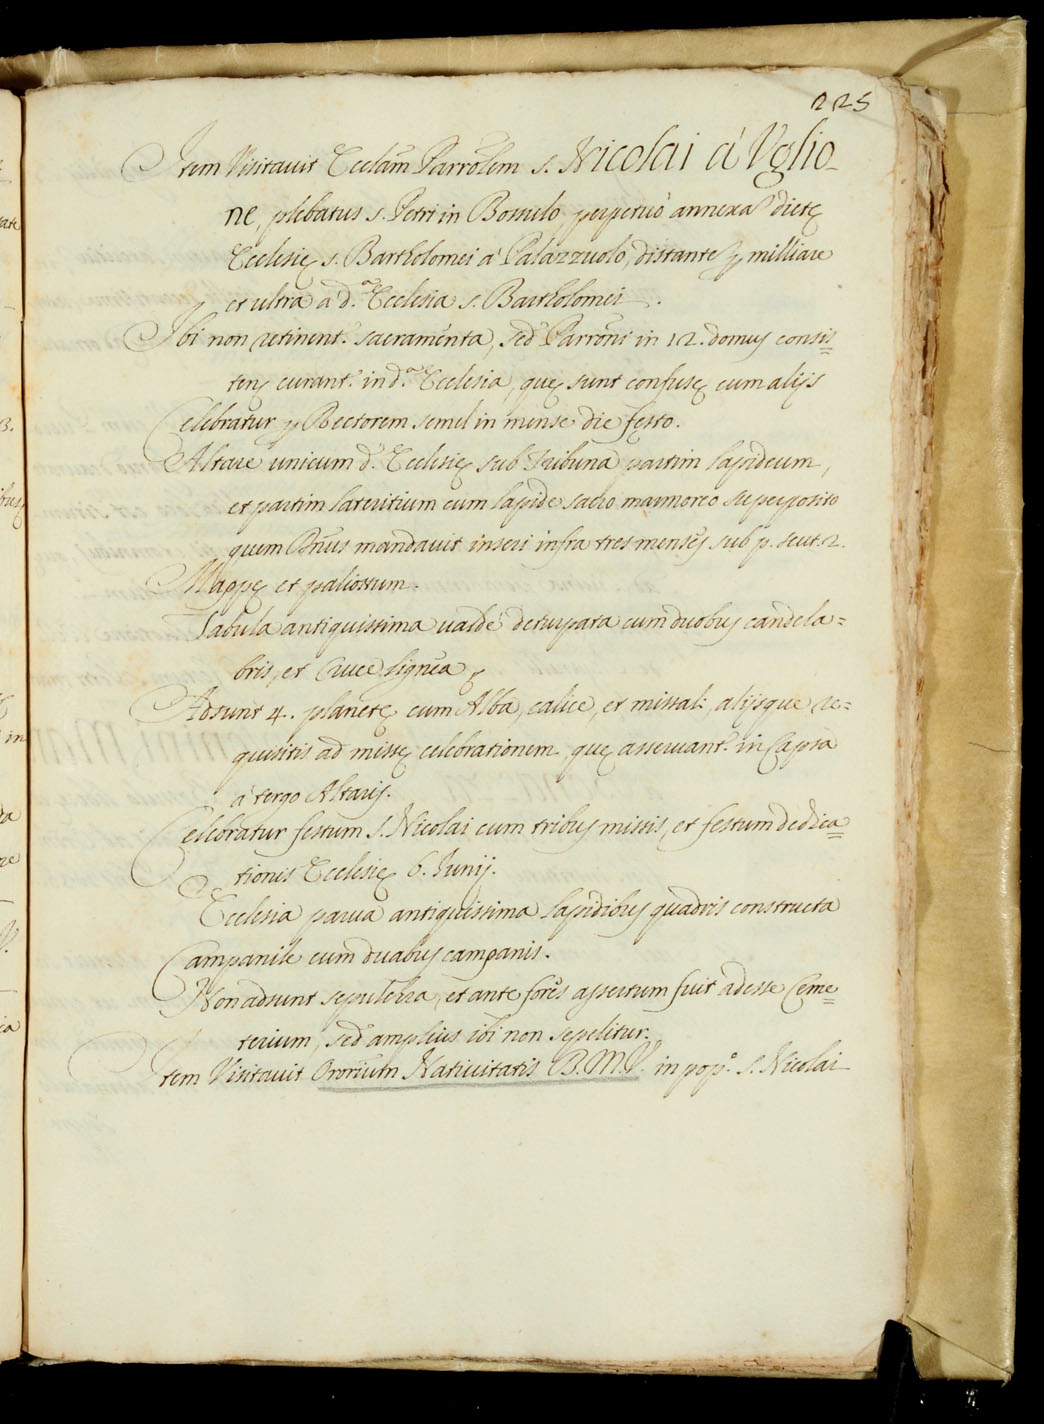 225
Item Visitauit Ecclam Parrõlem S. Nicolai à Vglio-
ne, plebatus S. Petri in Bossulo perpetuò annexa dictę
Ecclesię S. Bartholomei à Palazzuolo, distante p milliare
et ultra à d.ª Ecclesia S. Bartholomei.
Ibi non retinent.r sacramenta, sed Parroni in 12. domus consis=
tens curant.r in d.ª Ecclesia, quę sunt confusę cum alijs
Celebratur p Rectorem semel in mense die festo.
Altare unicum d.ę Ecclesię sub Tribuna partim lapideum,
et partim lateritium cum lapide sacro marmoreo superposito
quem Rm̃us mandauit inseri infra tres menses sub p. scut. 2.
Mappę et paliottum.
Tabula antiquissima ualdè deturpata cum duobus candela=
bris, et cruce lignea.
Adsunt 4. planetę cum Alba, calice, et missali, alijsque re=
quisitis ad missę celebrationem quę asseruant.r in Capsa
à tergo Altaris.
Celebratur festum S. Nicolai cum tribus missis, et festum dedica=
tionis Ecclesię 6. Junij.
Ecclesia parua antiquissima lapidibus quadris constructa
Campanile cum duabus campanis.
Non adsunt sepulchra, et ante fores assertum fuit adesse Ceme=
terium, sed amplius ibi non sepelitur.
Item Visitauit Ororium Natiuitatis B. M. V. in pop.º S. Nicolai